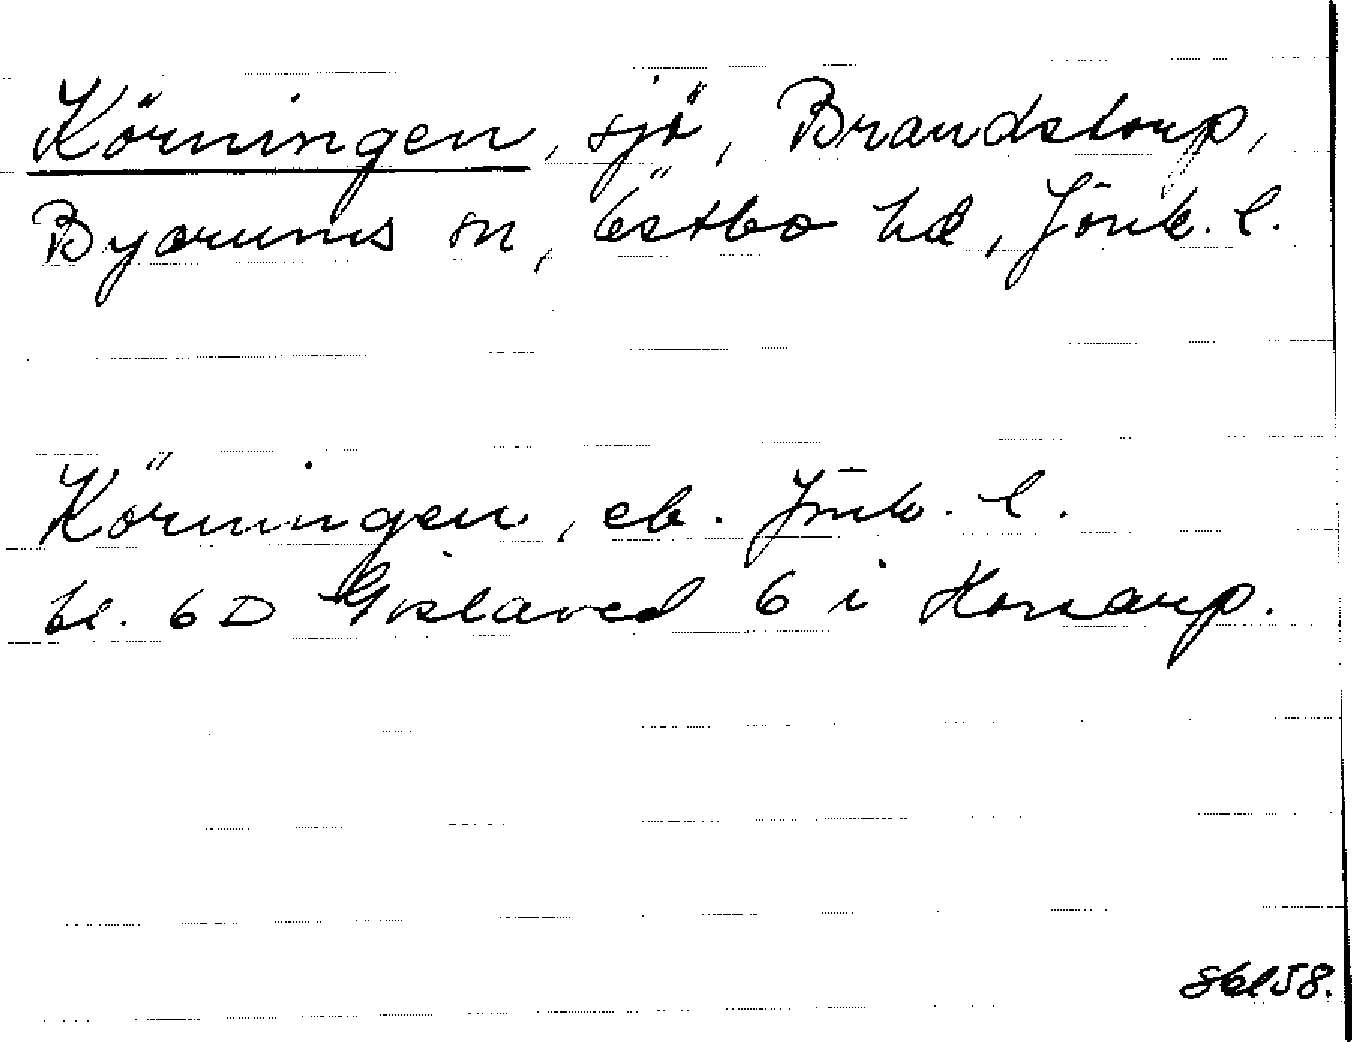 Körningen, sjö, Brandstorp,
Byarums sn, Östbo hd, Jönk. l.
Körningen, ek. Jönk. l.
bl. 6 D Gislaved 6 i Honarp.